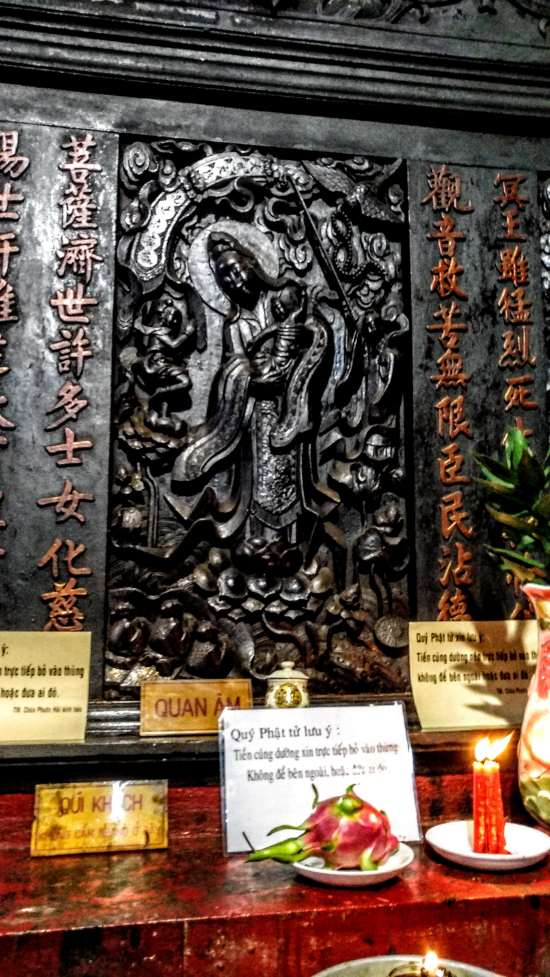 觀音救苦無限臣民沾德
冥王雖猛烈死
菩薩濟世許多士女化慈
QUAN ÂM
ý:
trực tiếp bỏ vào thùng
hoặc đưa ai đó.
TM. Chùa Phước Hải kính báo
Quý Phật tử xin lưu ý:
Tiền cúng dường nên trực tiếp bỏ
không để bên ngoài hoặc đưa
TM. Chùa Phước
Quý Phật tử lưu ý :
Tiền cúng dường xin trực tiếp bỏ vào thùng
Không để bên ngoài, hoặc
QÚI KHÁCH